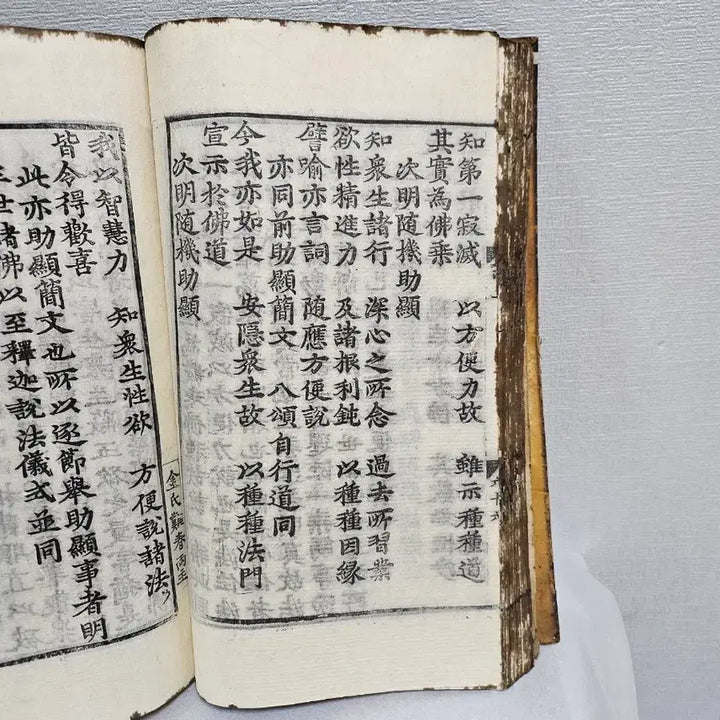 知第一寂滅 以方便力故 雖示種種道
其實為佛乘
次明隨機助顯
知衆生諸行 深心之所念 過去所習業
欲性精進力 及諸根利鈍 以種種因緣
譬喻亦言詞 隨應方便說
亦同前助顯簡文 八頌自行道同
今我亦如是 安隱衆生故 以種種法門
宣示於佛道
次明隨機助顯
金氏
我以智慧力 知衆生性欲 方便說諸法
皆令得歡喜
此亦助顯簡文也所以逐節舉助顯事者明
三世諸佛以至釋迦說法儀式並同